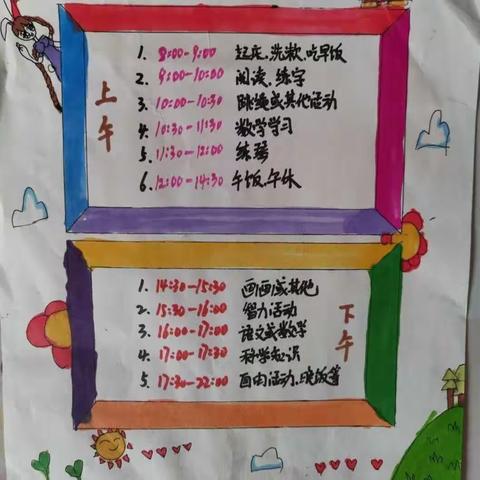 上午
1. 8:00-9:00 起床、洗漱、吃早饭
2. 9:00-10:00 阅读、练字
3. 10:00-10:30 跳绳或其他活动
4. 10:30-11:30 数学学习
5. 11:30-12:00 练琴
6. 12:00-14:30 午饭、午休
下午
1. 14:30-15:30 画画或其他
2. 15:30-16:00 智力活动
3. 16:00-17:00 语文或数学
4. 17:00-17:30 科学知识
5. 17:30-22:00 自由活动、晚饭等